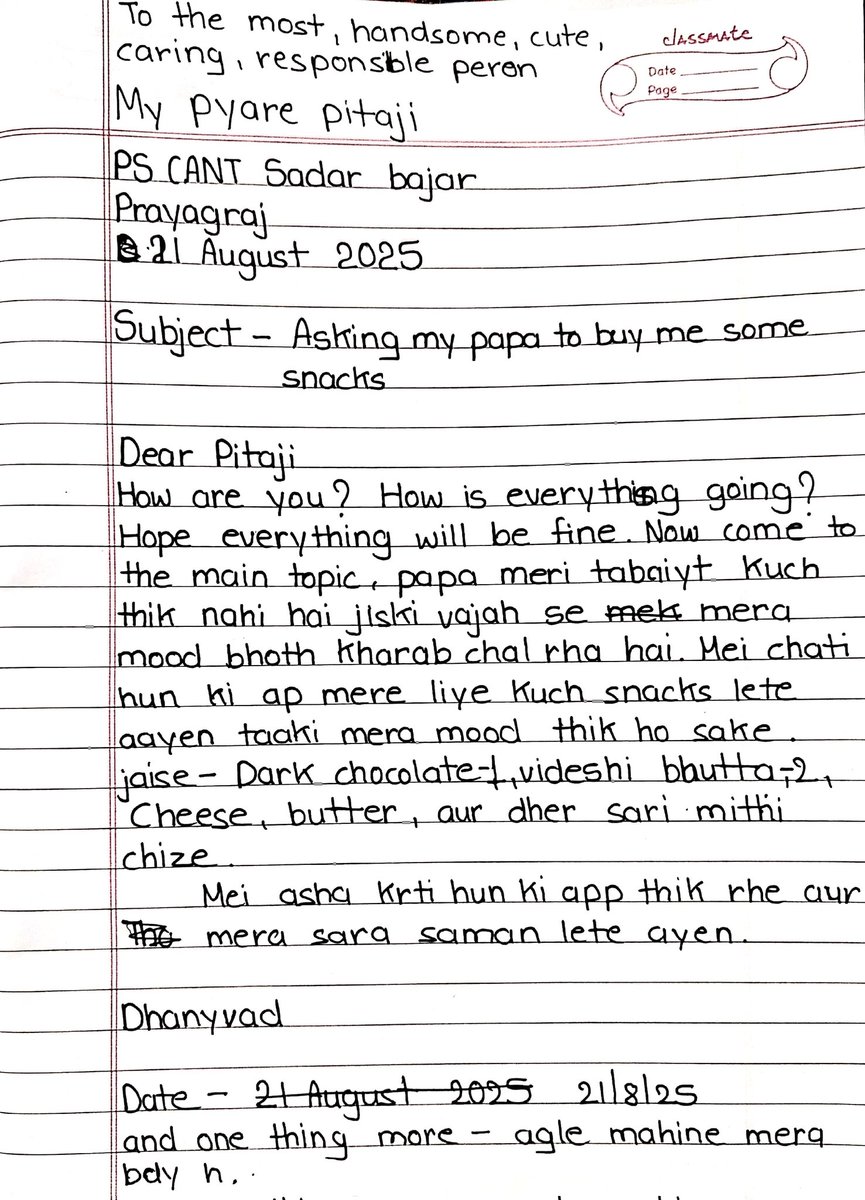 To the most, handsome, cute,
caring, responsble peron
My pyare pitaji
classmate
Date
Page
PS CANT Sadar bajar
Prayagraj
21 August 2025
Subject - Asking my papa to buy me some
snacks
Dear Pitaji
How are you? How is everything going?
Hope everything will be fine. Now come to
the main topic, papa meri tabaiyt kuch
thik nahi hai jiski vajah se mek mera
mood bhoth kharab chal rha hai. Mei chati
hun ki ap mere liye kuch snacks lete
aayen taaki mera mood thik ho sake.
jaise - Dark chocolate-1, videshi bhutta-2,
Cheese, butter, aur dher sari mithi
chize.
Mei asha krti hun ki app thik rhe aur
mera sara saman lete ayen.
Dhanyvad
Date - 21 August 2025 21/8/25
and one thing more - agle mahine mera
bdy h.